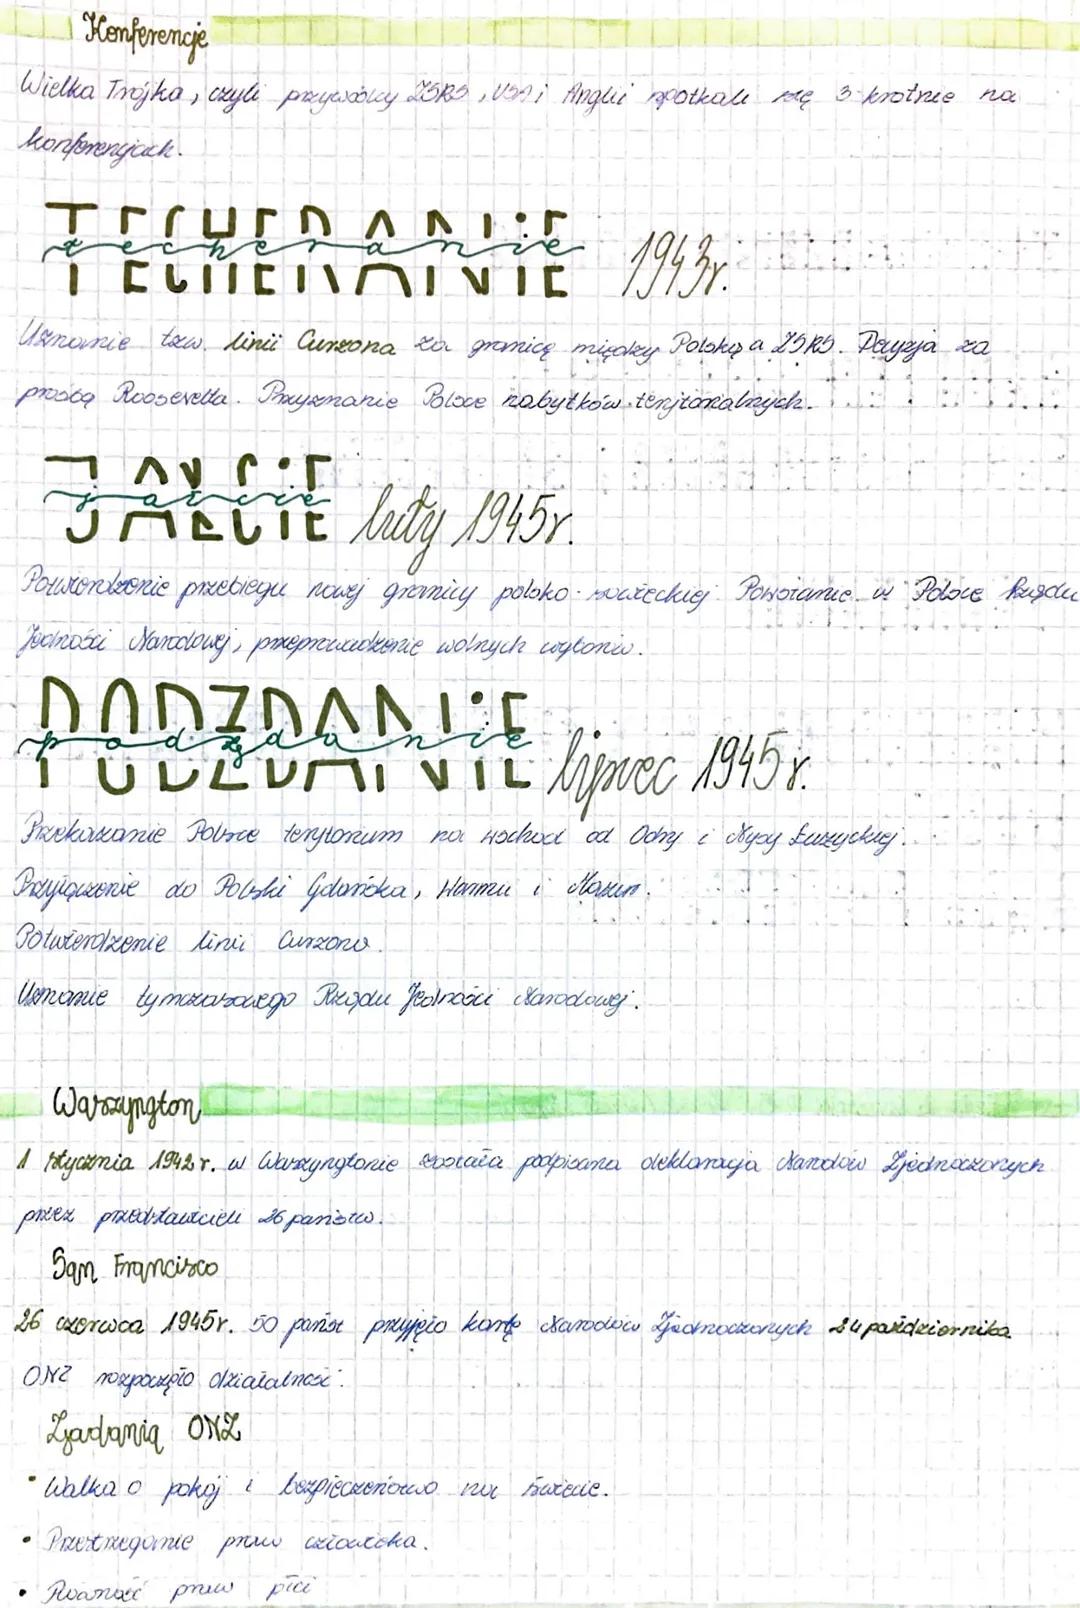 Konferencje
Wielka Trójka, czyli przywódcy ZSRS, USA i Anglii spotkali się 3 krotnie na
konferencjach.
TECHERANIE
techeranie 1943r.
Uznanie tzw. linii Curzona za granicę między Polską a ZSRS. Decyzja za
prośbą Roosevelta. Przyznanie Polsce nabytków terytorialnych.
JAŁCIE
jałcie luty 1945r.
Potwierdzenie przebiegu nowej granicy polsko-sowieckiej. Powstanie w Polsce Rządu
Jedności Narodowej, przeprowadzenie wolnych wyborów.
PODZDANIE
podzdanie lipiec 1945r.
Przekazanie Polsce terytorium na wschód od Odry i Nysy Łużyckiej.
Przyłączenie do Polski Gdańska, Warmii i Mazur.
Potwierdzenie linii Curzona.
Uznanie tymczasowego Rządu Jedności Narodowej.
Warszyngton
1 stycznia 1942r. w Warszyngtonie została podpisana deklaracja Narodów Zjednoczonych
przez przedstawicieli 26 państw.
San Francisco
26 czerwca 1945r. 50 państ przyjęło kartę Narodów Zjednoczonych 24 października
ONZ rozpoczęło działalność.
Zadania ONZ
• Walka o pokój i bezpieczeństwo na świecie.
• Przestrzeganie praw człowieka.
• Równość praw płci